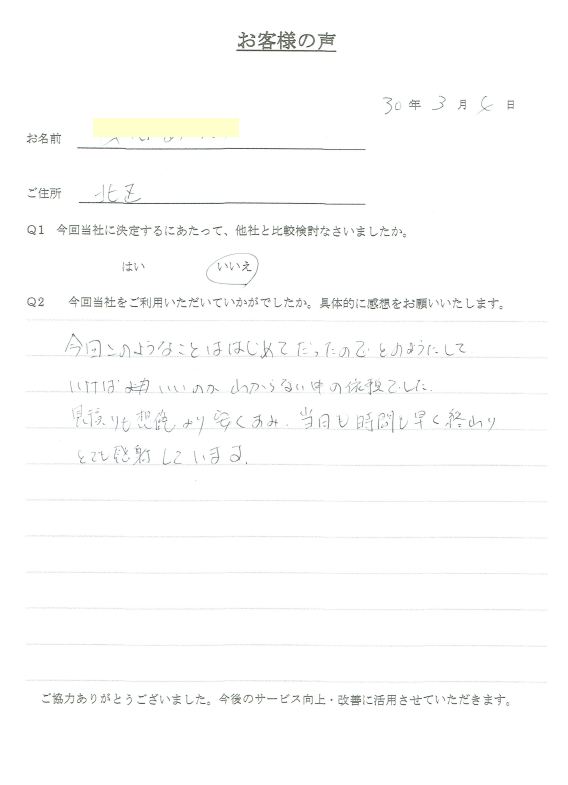 お客様の声
30年 3月 4日
お名前
ご住所 北区
Q1 今回当社に決定するにあたって、他社と比較検討なさいましたか。
はい いいえ
Q2 今回当社をご利用いただいていかがでしたか。具体的に感想をお願いいたします。
今回このようなことははじめてだったので どのようにして
いけば いいのか わからない中の依頼でした.
見積りも想像より安くすみ、当日も時間も早く終わり
とても感謝しています.
ご協力ありがとうございました。今後のサービス向上・改善に活用させていただきます。